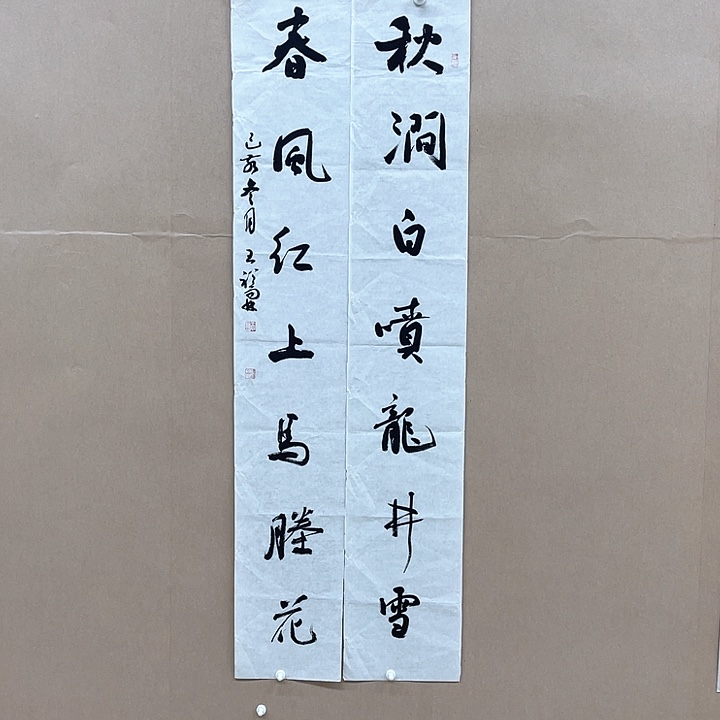 秋澗白噴龍井雪
春風紅上馬塍花
己亥冬月 王